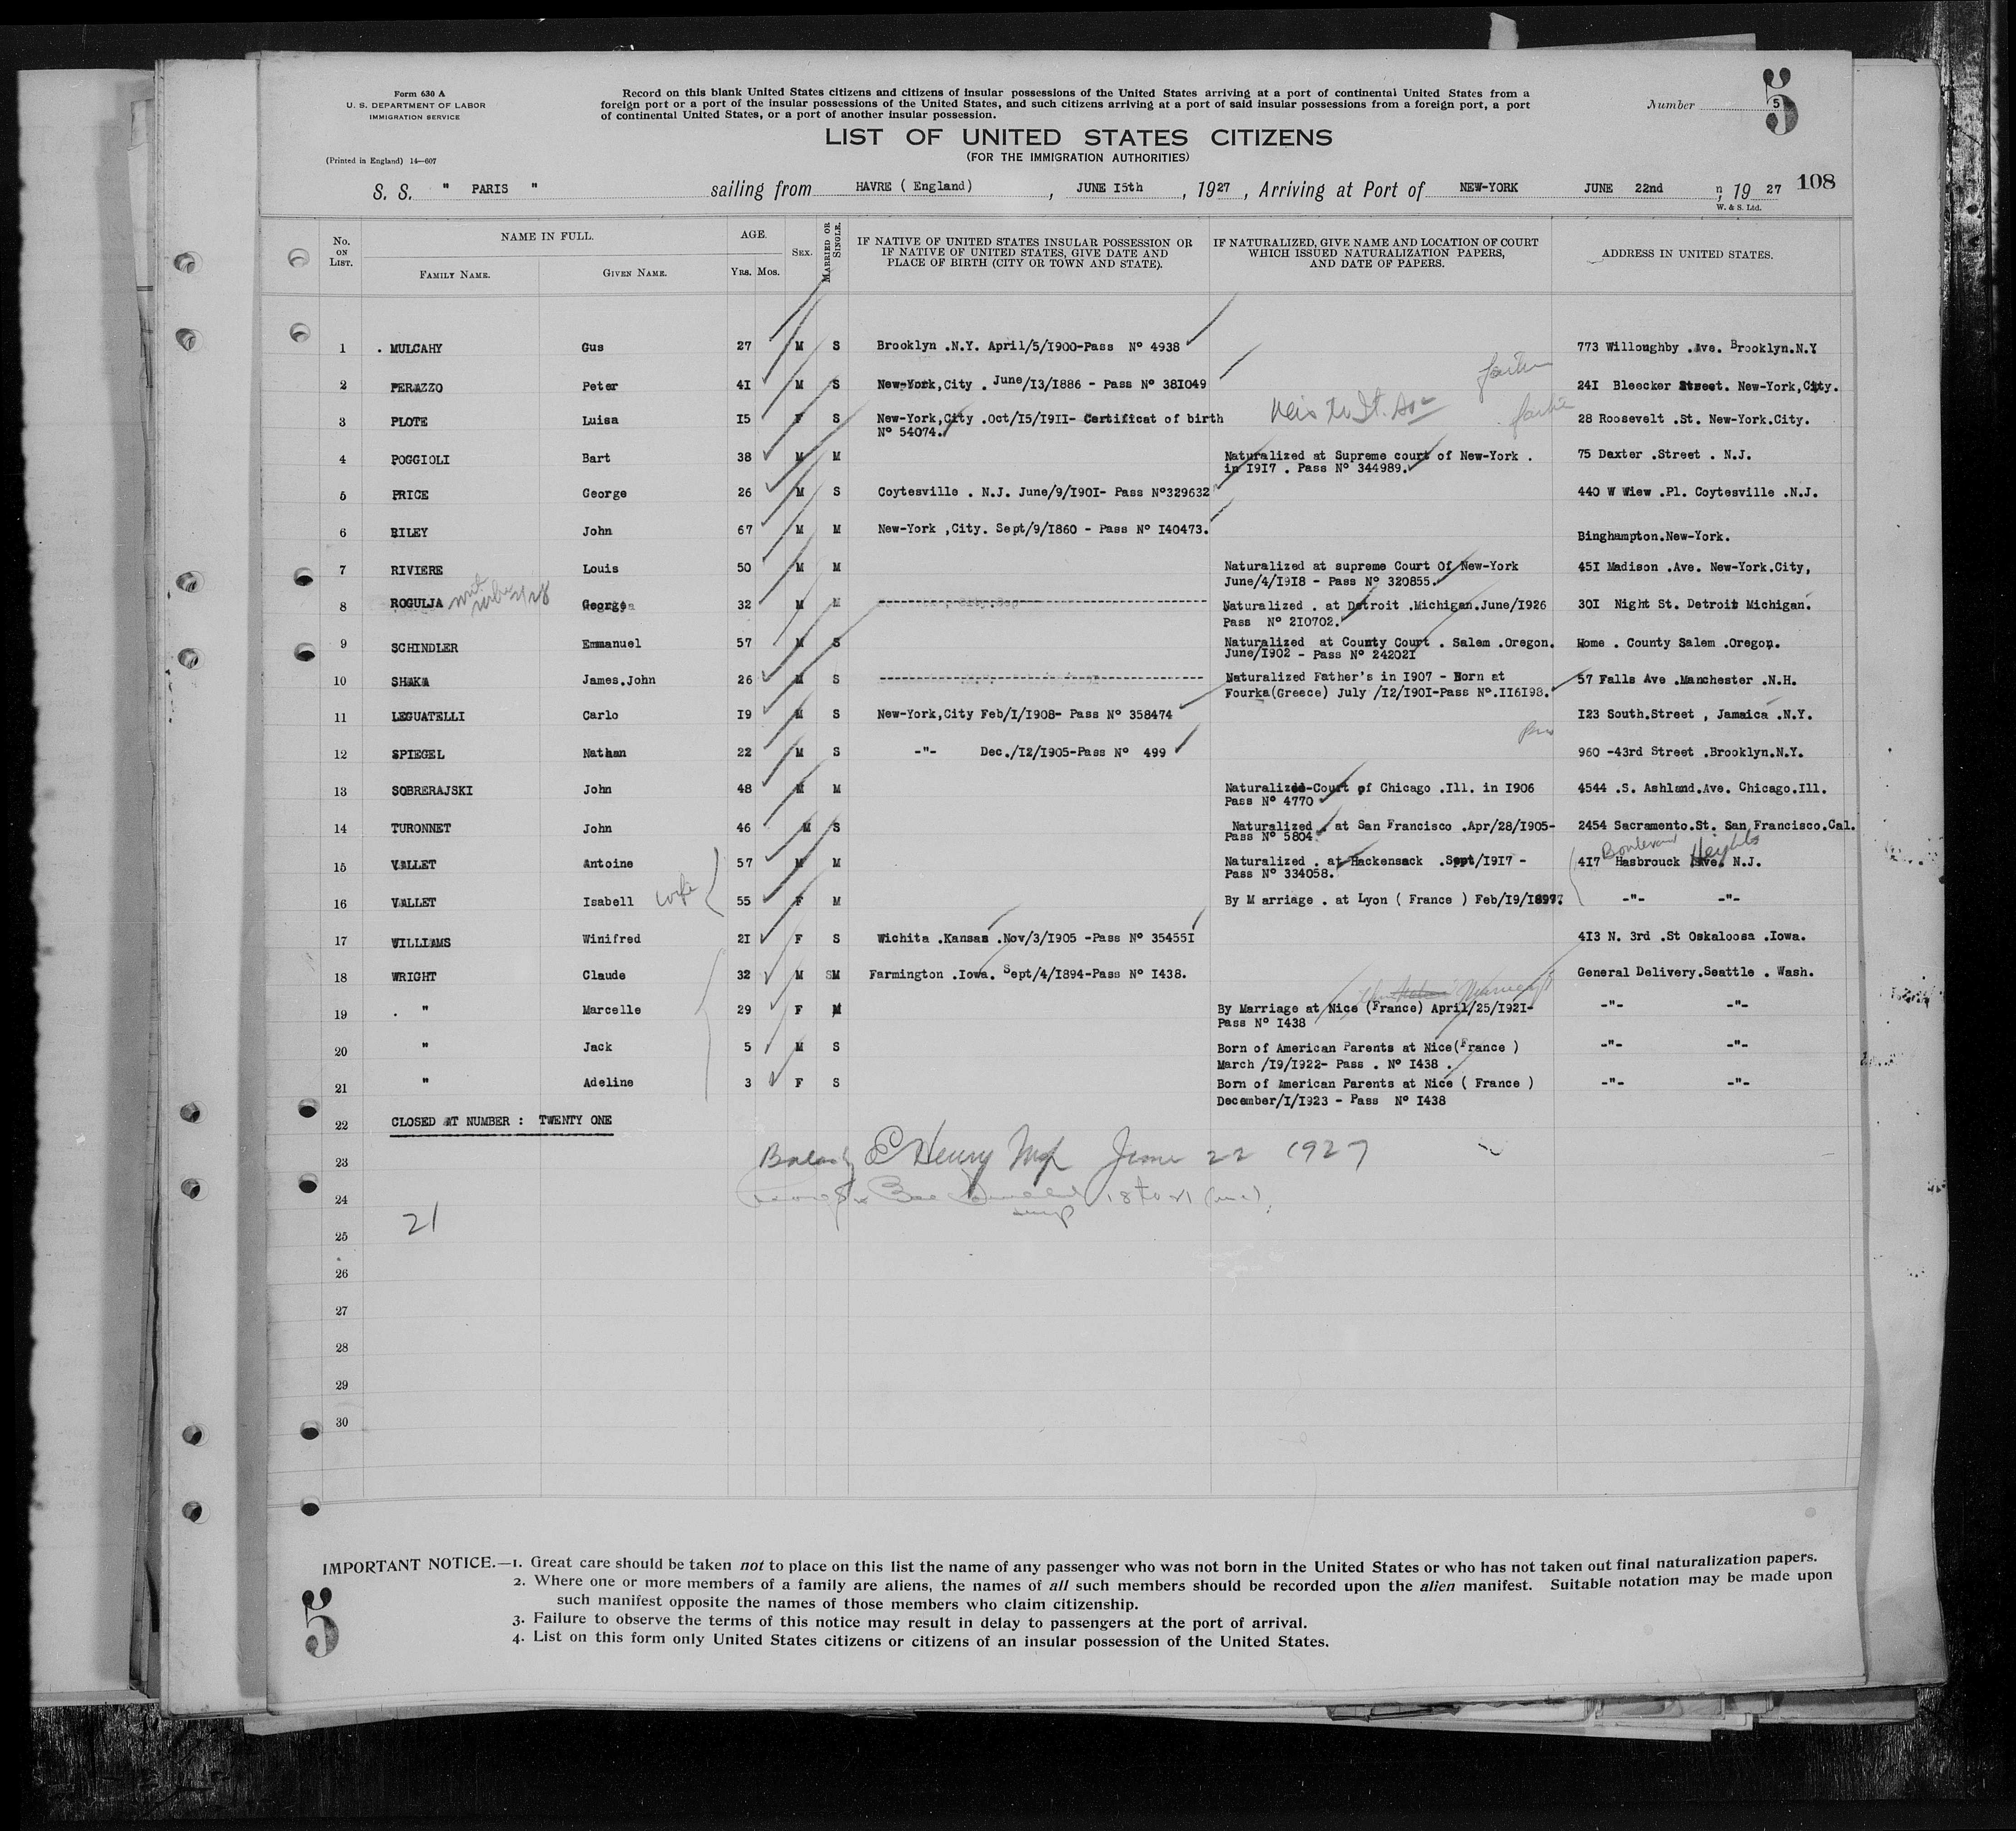 Form 630 A
U. S. DEPARTMENT OF LABOR
IMMIGRATION SERVICE
(Printed in England) 14—607
Record on this blank United States citizens and citizens of insular possessions of the United States arriving at a port of continental United States from a
foreign port or a port of the insular possessions of the United States, and such citizens arriving at a port of said insular possessions from a foreign port, a port
of continental United States, or a port of another insular possession.
Number 5
5
LIST OF UNITED STATES CITIZENS
(FOR THE IMMIGRATION AUTHORITIES)
S. S. " PARIS " sailing from HAVRE ( England) , JUNE I5th , 1927 , Arriving at Port of NEW-YORK JUNE 22nd , 19 27 108
W. & S. Ltd.
No. ON LIST. NAME IN FULL. FAMILY NAME. GIVEN NAME. AGE. Yrs. Mos. SEX. MARRIED OR SINGLE. IF NATIVE OF UNITED STATES INSULAR POSSESSION OR IF NATIVE OF UNITED STATES, GIVE DATE AND PLACE OF BIRTH (CITY OR TOWN AND STATE). IF NATURALIZED, GIVE NAME AND LOCATION OF COURT WHICH ISSUED NATURALIZATION PAPERS, AND DATE OF PAPERS. ADDRESS IN UNITED STATES.
1 . MULCAHY Gus 27 M S Brooklyn .N.Y. April/5/I900-Pass Nº 4938 773 Willonghby .Ave. Brooklyn.N.Y
2 PERAZZO Peter 4I M S New-York,City . June/I3/I886 - Pass Nº 38I049 24I Bleecker Street. New-York,City.
3 PLOTE Luisa I5 F S New-York,City .Oct/I5/I9II- Certificat of birth 28 Roosevelt .St. New-York.City.
Nº 54074.
4 POGGIOLI Bart 38 M M Naturalized at Supreme court of New-York . 75 Daxter .Street . N.J.
in I9I7 . Pass Nº 344989.
5 PRICE George 26 M S Coytesville . N.J. June/9/I90I- Pass Nº329632 440 W Wiew .Pl. Coytesville .N.J.
6 RILEY John 67 M M New-York ,City. Sept/9/I860 - Pass Nº I40473. Binghampton.New-York.
7 RIVIERE Louis 50 M M Naturalized at supreme Court Of New-York 45I Madison .Ave. New-York.City,
June/4/I9I8 - Pass Nº 320855.
8 ROGULJA George 32 M M Naturalized . at Detroit .Michigan.June/I926 30I Night St. Detroit Michigan.
Pass Nº 2I0702.
9 SCHINDLER Emmanuel 57 M S Naturalized at County Court . Salem .Oregon. Home . County Salem .Oregon.
June/I902 - Pass Nº 24202I
10 SHAKA James.John 26 M S Naturalized Father's in I907 - Born at 57 Falls Ave .Manchester .N.H.
Fourka(Greece) July /I2/I90I-Pass Nº.II6I98.
11 LEGUATELLI Carlo I9 M S New-York,City Feb/I/I908- Pass Nº 358474 I23 South.Street , Jamaica .N.Y.
12 SPIEGEL Nathan 22 M S -"- Dec./I2/I905-Pass Nº 499 960 -43rd Street .Brooklyn.N.Y.
13 SOBRERAJSKI John 48 M M Naturalized-Court of Chicago .Ill. in I906 4544 .S. Ashland.Ave. Chicago.Ill.
Pass Nº 4770
14 TURONNET John 46 M S Naturalized . at San Francisco .Apr/28/I905- 2454 Sacramento.St. San Francisco.Cal.
Pass Nº 5804
Boulevard Heights
15 VALLET Antoine 57 M M Naturalized . at Hackensack .Sept/I9I7 - 4I7 Hasbrouck Ave. N.J.
Pass Nº 334058.
16 VALLET Isabell wife 55 F M By M arriage . at Lyon ( France ) Feb/I9/I897. -"- -"-
17 WILLIAMS Winifred 2I F S Wichita .Kansas .Nov/3/I905 -Pass Nº 35455I 4I3 N. 3rd .St Oskaloosa .Iowa.
18 WRIGHT Claude 32 M SM Farmington .Iowa. Sept/4/I894-Pass Nº I438. General Delivery.Seattle . Wash.
19 . " Marcelle 29 F M By Marriage at Nice (France) April/25/I92I- -"- -"-
Pass Nº I438
20 " Jack 5 M S Born of American Parents at Nice(France ) -"- -"-
March /I9/I922- Pass . Nº I438 .
21 " Adeline 3 F S Born of American Parents at Nice ( France ) -"- -"-
December/I/I923 - Pass Nº I438
22 CLOSED AT NUMBER : TWENTY ONE
23 Henry June 22 1927
24 18 to 21
21
25
26
27
28
29
30
IMPORTANT NOTICE.—1. Great care should be taken not to place on this list the name of any passenger who was not born in the United States or who has not taken out final naturalization papers.
2. Where one or more members of a family are aliens, the names of all such members should be recorded upon the alien manifest. Suitable notation may be made upon
such manifest opposite the names of those members who claim citizenship.
3. Failure to observe the terms of this notice may result in delay to passengers at the port of arrival.
4. List on this form only United States citizens or citizens of an insular possession of the United States.
5